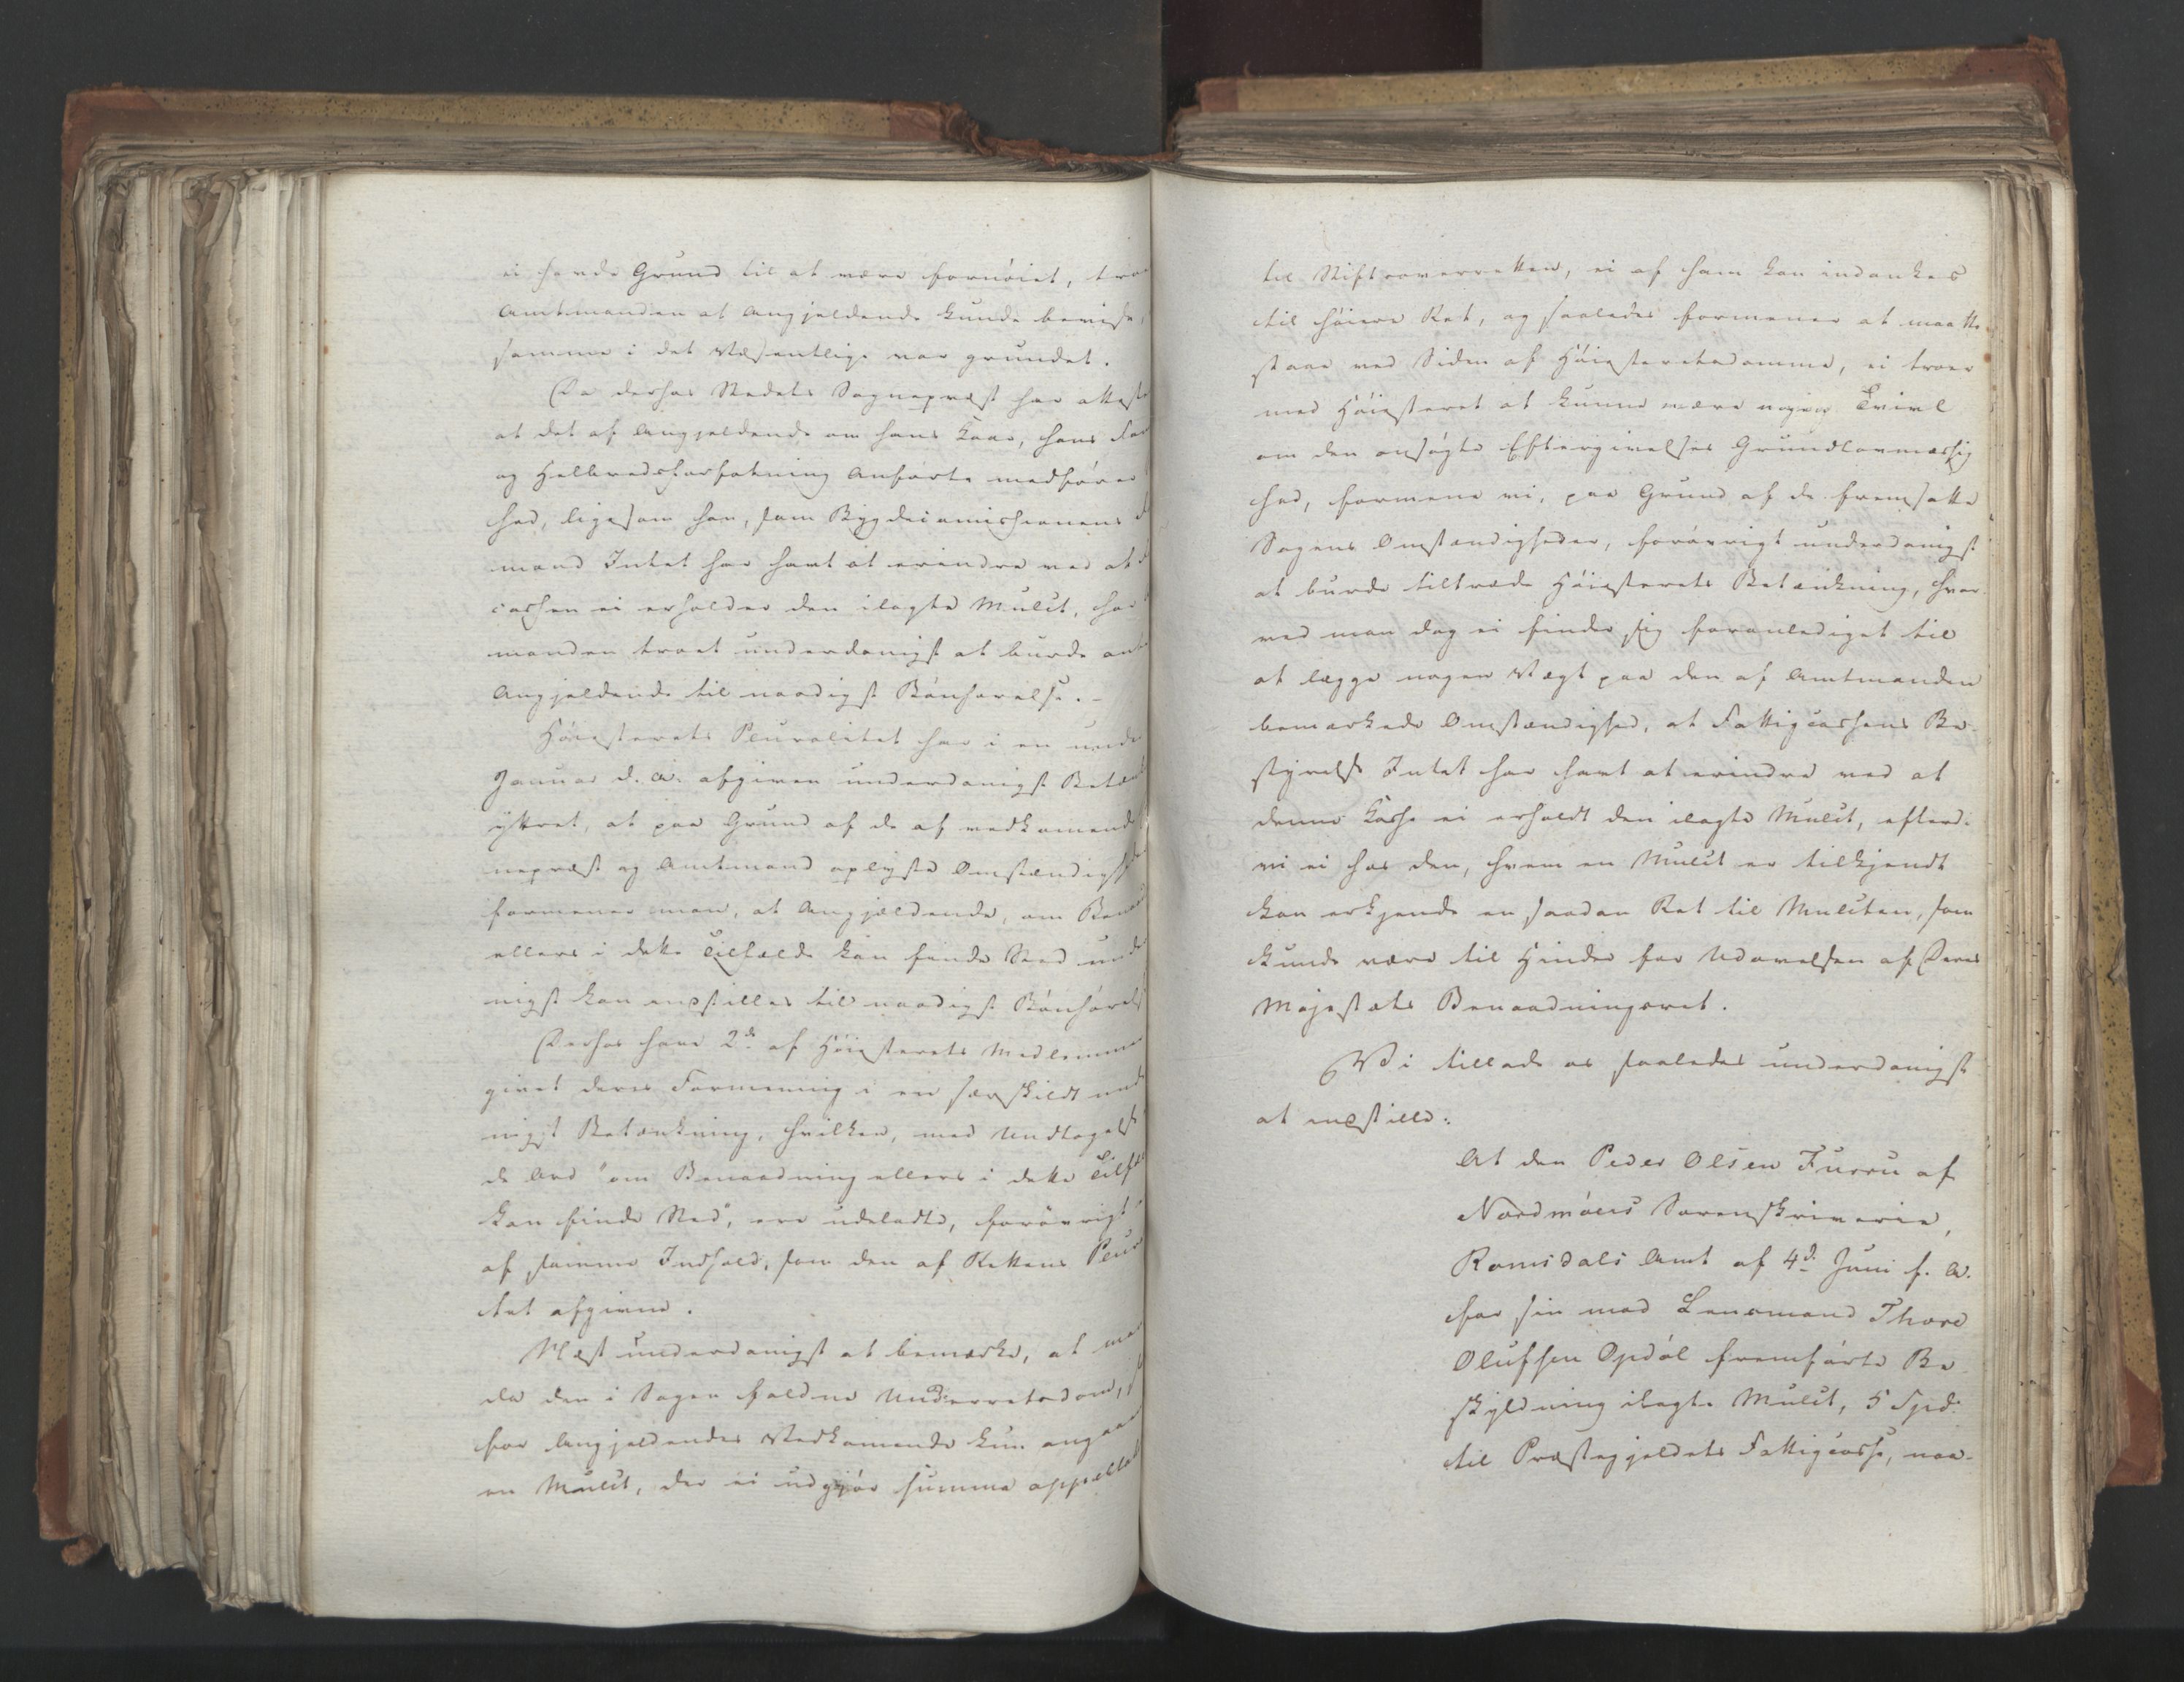 ei havde Grund til at være fornøiet, troer
Amtmanden at Angjeldende kunde bevise,
samme i det Væsentlige var grundet.
Da derhos Stedets Sognepræst har attest
at det af Angjeldende om hans Kaar, hans For
og Helbredsforfatning Anførte medfører
hed, ligesom han, som Bygdecommissionens
mand Intet har havt at erindre ved at
cassen ei erholder den ilagte Mulct, har
manden troet underdanigst at burde an
Angjeldende til naadigst Bønhørelse. -
Høiesterets Pluralitet har i en unde
Januar d. A. afgiven underdanigst Betænk
yttret, at paa Grund af de af vedkommende
nepræst og Amtmand oplyste Omstændighe
formener man, at Angjældende, om Benaad
ellers i dette Tilfælde kan finde Sted unde
nigst kan indstilles til naadigst Bønhørelse
Derhos have 2de af Høiesterets Medlemmer
givet deres Formening i en særskildt unde
nigst Betænkning, hvilken, med Undtagelse
de Ord "om Benaadning ellers i dette Tilfæ
kan finde Sted", ere udeladte, forøvrigt
af samme Indhold, som den af Rettens Plura
tet afgivne.
Næst underdanigst at bemærke, at man
da den i Sagen faldne Underretsdom,
for Angjeldendes Vedkommende kun angaaer
en Mulct, der ei udgjør summa appellabilis
til Stiftsoverretten, ei af ham kan indankes
til høiere Ret, og saaledes formener at maatte
staae ved Siden af Høiesteretsdomme, ei troer
med Høiesteret at kunne være nogen Tvivl
om den ansøgte Eftergivelses Grundlovmæssig
hed, formene vi, paa Grund af de fremsatte
Sagens Omstændigheder, forøvrigt underdanigst
at burde tiltræde Høiesterets Betænkning, hvor
ved man dog ei finder sig foranlediget til
at lægge nogen Vægt paa den af Amtmanden
bemærkede Omstændighed, at Fattigcassens Be-
styrelse Intet har havt at erindre ved at
denne Casse ei erholdt den ilagte Mulct, efterdi
vi ei hos den, hvem en Mulct er tilkjendt
kan erkjende en saadan Ret til Mulcten, som
kunde være til Hinder for Udøvelsen af Deres
Majestæts Benaadningsret.
Vi tillade os saaledes underdanigst
at indstille:
At den Peder Olsen Furru af
Nordmøers Sorenskriverie,
Romsdals Amt af 4de Juni f. A.
for sin mod Lensmand Thore
Olufsen Opdøl fremførte Be-
skyldning ilagte Mulct, 5 Spd.
til Præstegjeldets Fattigcasse, naa-